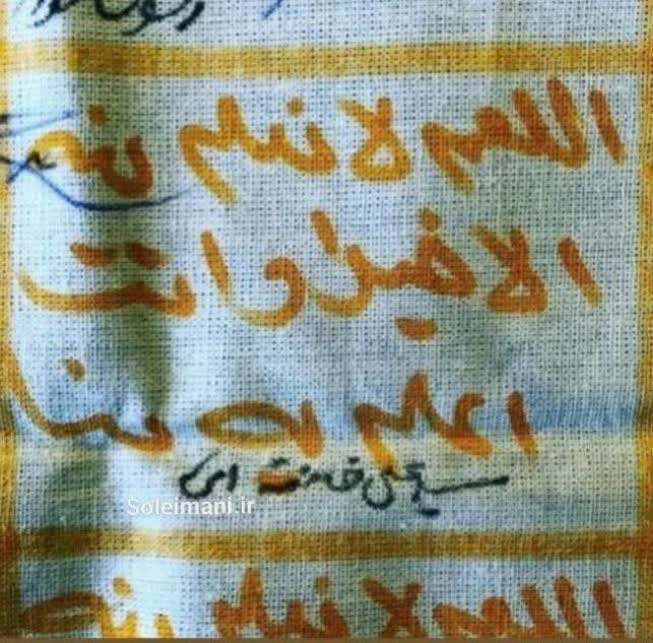 اللهم لا نعلم منه
الا خیرا و انت
اعلم به منا
سید علی خامنه‌ای
Soleimani.ir
اللهم لا نعلم منه